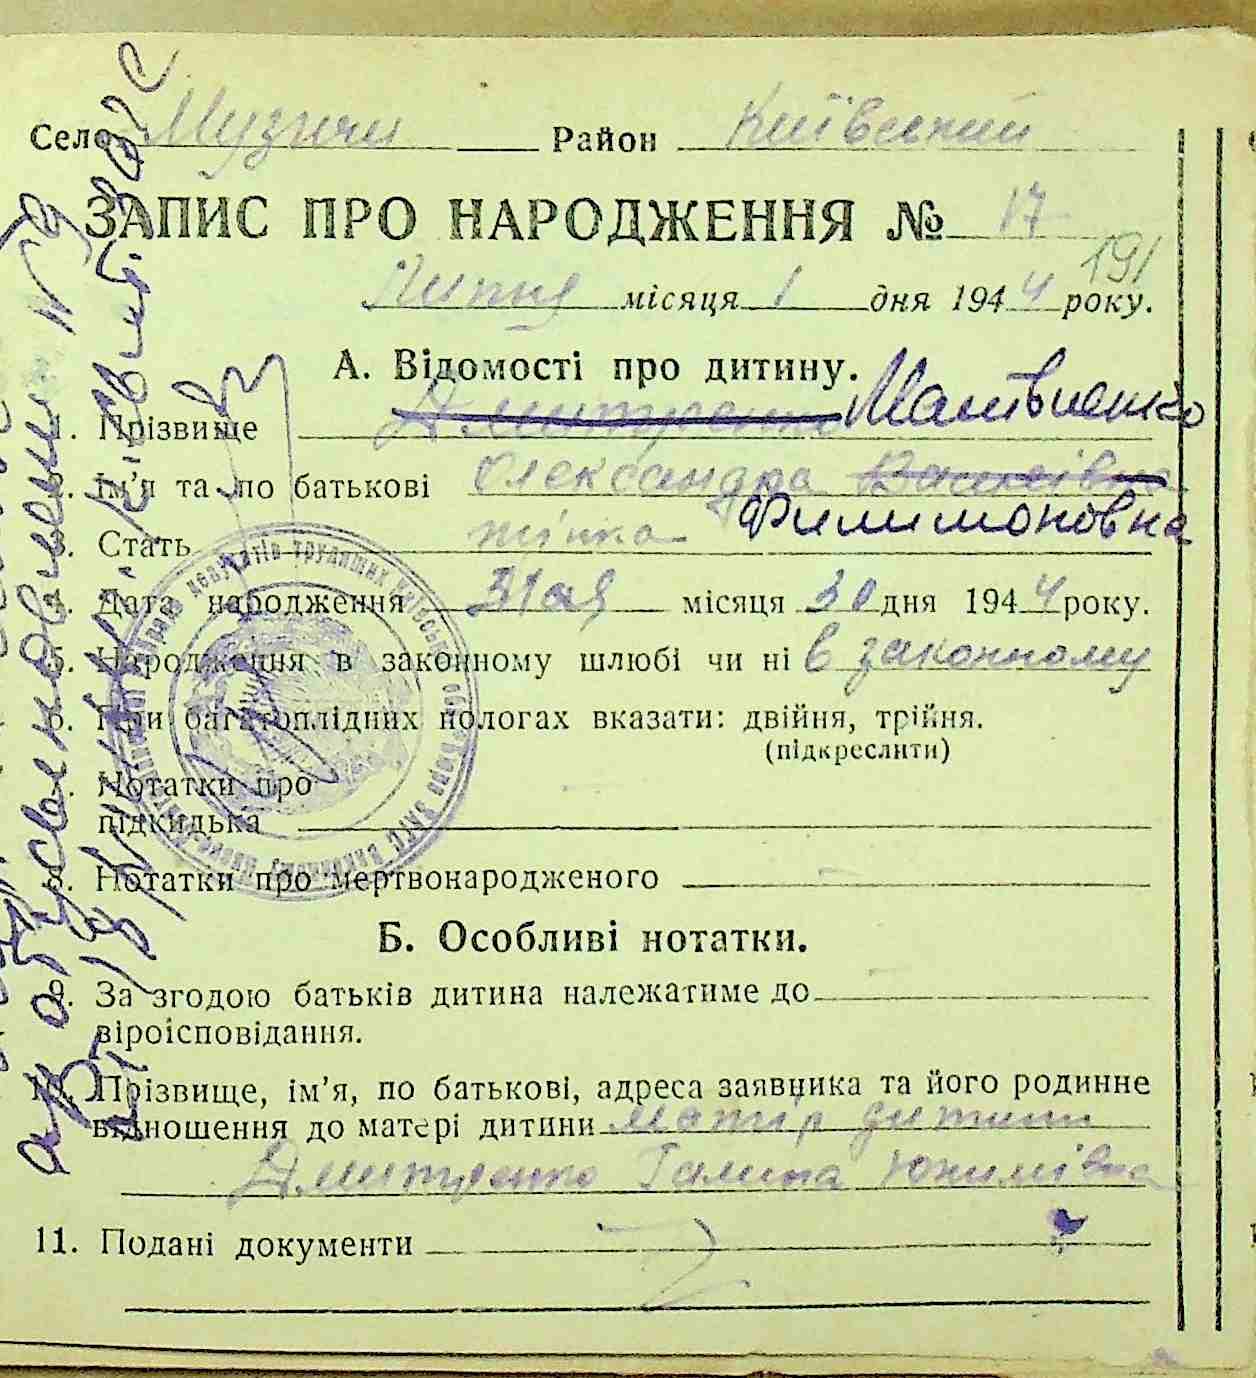 Село Музичи Район Київський
ЗАПИС ПРО НАРОДЖЕННЯ № 17
191
Липня місяця 1 дня 1944 року.
А. Відомості про дитину.
1. Прізвище Дмитренко Матвієнко
2. Ім'я та по батькові Олександра Василівна
Филимоновна
3. Стать жінка
4. Дата народження Мая місяця 30 дня 1944 року.
5. Народження в законному шлюбі чи ні в законному
6. При багатоплідних пологах вказати: двійня, трійня.
(підкреслити)
7. Нотатки про
підкидька
8. Нотатки про мертвонародженого
Б. Особливі нотатки.
9. За згодою батьків дитина належатиме до
віроісповідання.
10. Прізвище, ім'я, по батькові, адреса заявника та його родинне
відношення до матері дитини матір дитини
Дмитренко Галина Юхимівна
11. Подані документи